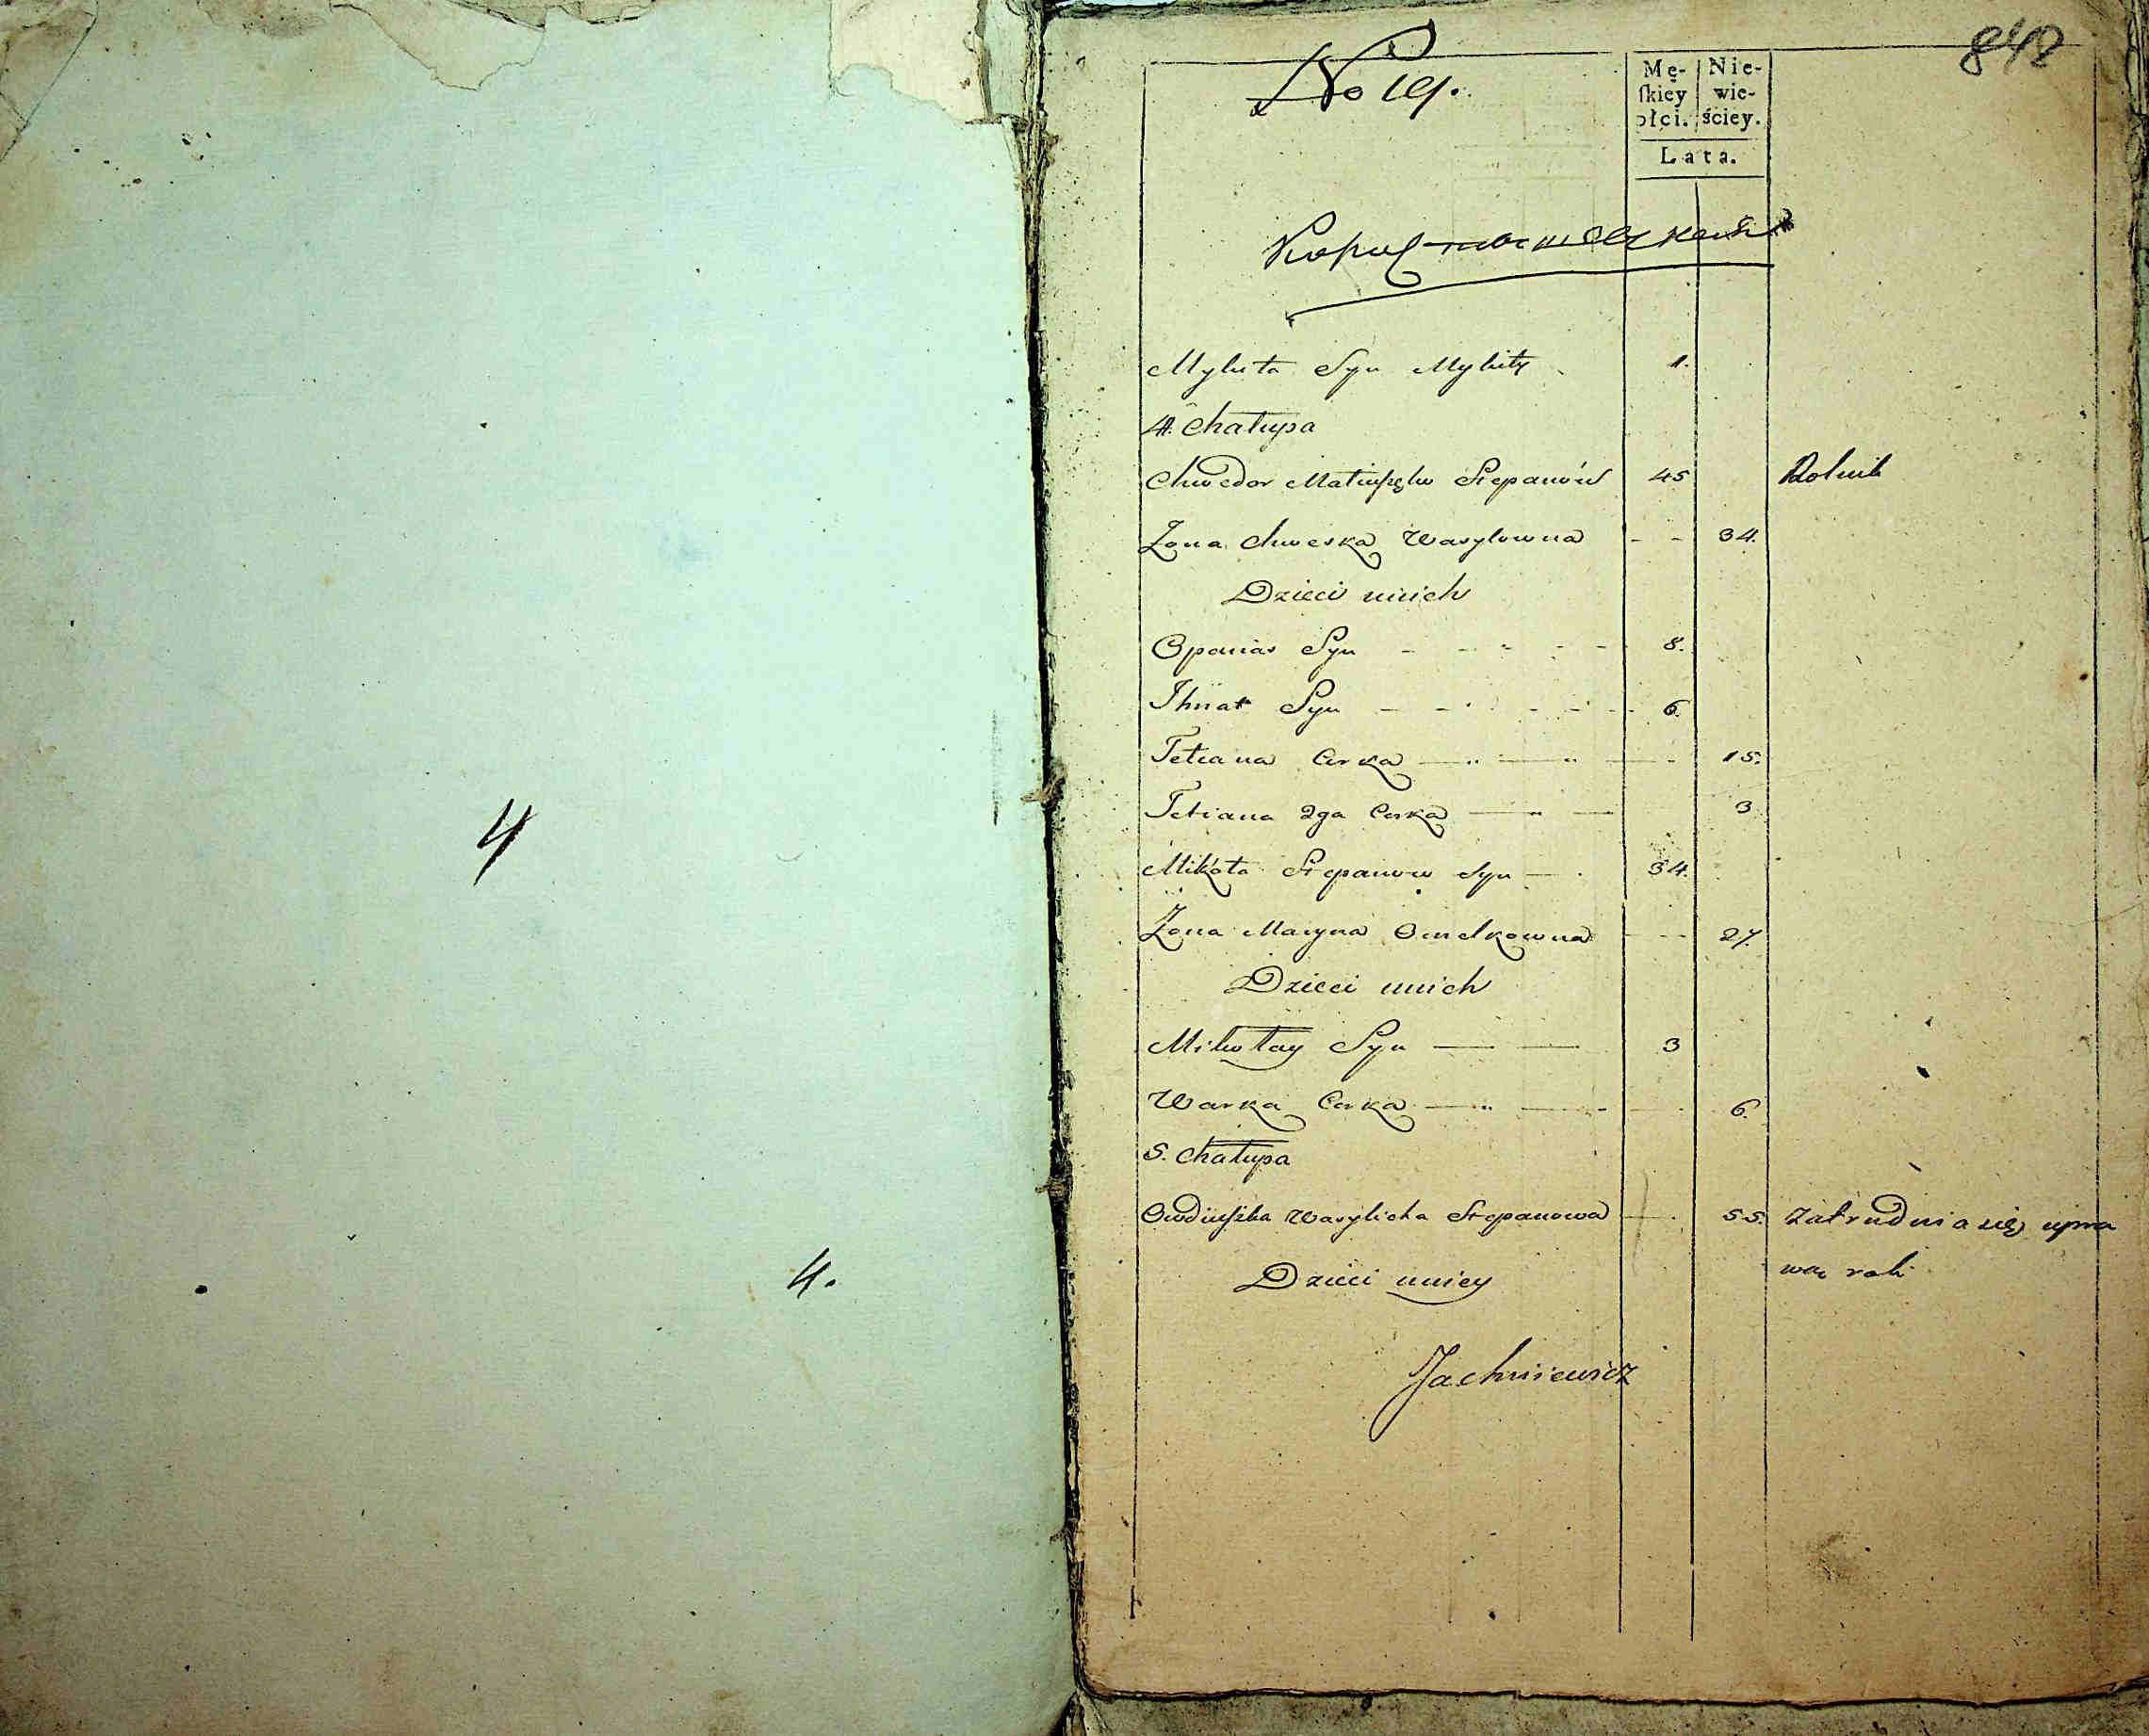 4
4.
842
No 19.
Mę- Nie-
ſkiey wie-
płci. ściey.
Lata.
Mykita Syn Mykity 1.
4. Chałupa
Chwedor Stepanów 45 Rolnik
Żona Chweska Wasylowna - - 34.
Dzieci unich
Opanas Syn - - - - - 8.
Ihnat Syn - - - - - - 6.
Tetiana Corka — " — " — - 15.
Tetiana 2ga Corka — " — 3
Mikołа Stepanow Syn — . 34.
Żona Maryna Omelkowna - - - 27.
Dzieci unich
Mikołay Syn — — 3
Warka Corka — " — - 6.
5. Chałupa
Wasylicha Stepanowa — . 55. Zatrudnia się upra
wą roli
Dzieci uniey
Jachniewicz